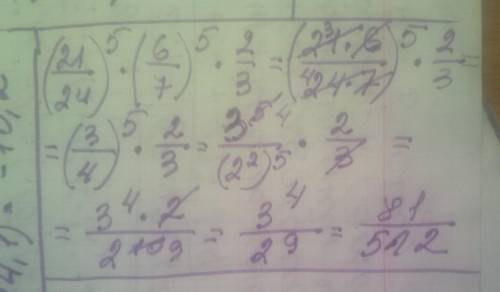 (21/24)^5 · (6/7)^5 · 2/3 = (21·6/24·7)^5 · 2/3 =
= (3/4)^5 · 2/3 = 3^5/(2^2)^5 · 2/3 =
= 3^4 · 2/2^10 = 3^4/2^9 = 81/512